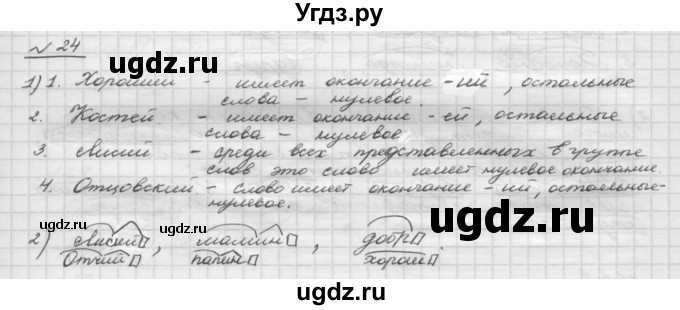 Угдз.ру
№ 24
1) 1. Хороший - имеет окончание -ий, остальные
слова - нулевое.
2. Костей - имеет окончание -ей, остальные
слова - нулевое
3. Лисий - среди всех представленных в группе
слов это слово имеет нулевое окончание.
4. Отцовский - слово имеет окончание - ий, остальные-
нулевое.
2) лисий, мамин, добр
отчий папин хорош.
ugdz.ru
ugdz.ru
ugdz.ru
ugdz.ru
ugdz.ru
ugdz.ru
ugdz.ru
ugdz.ru